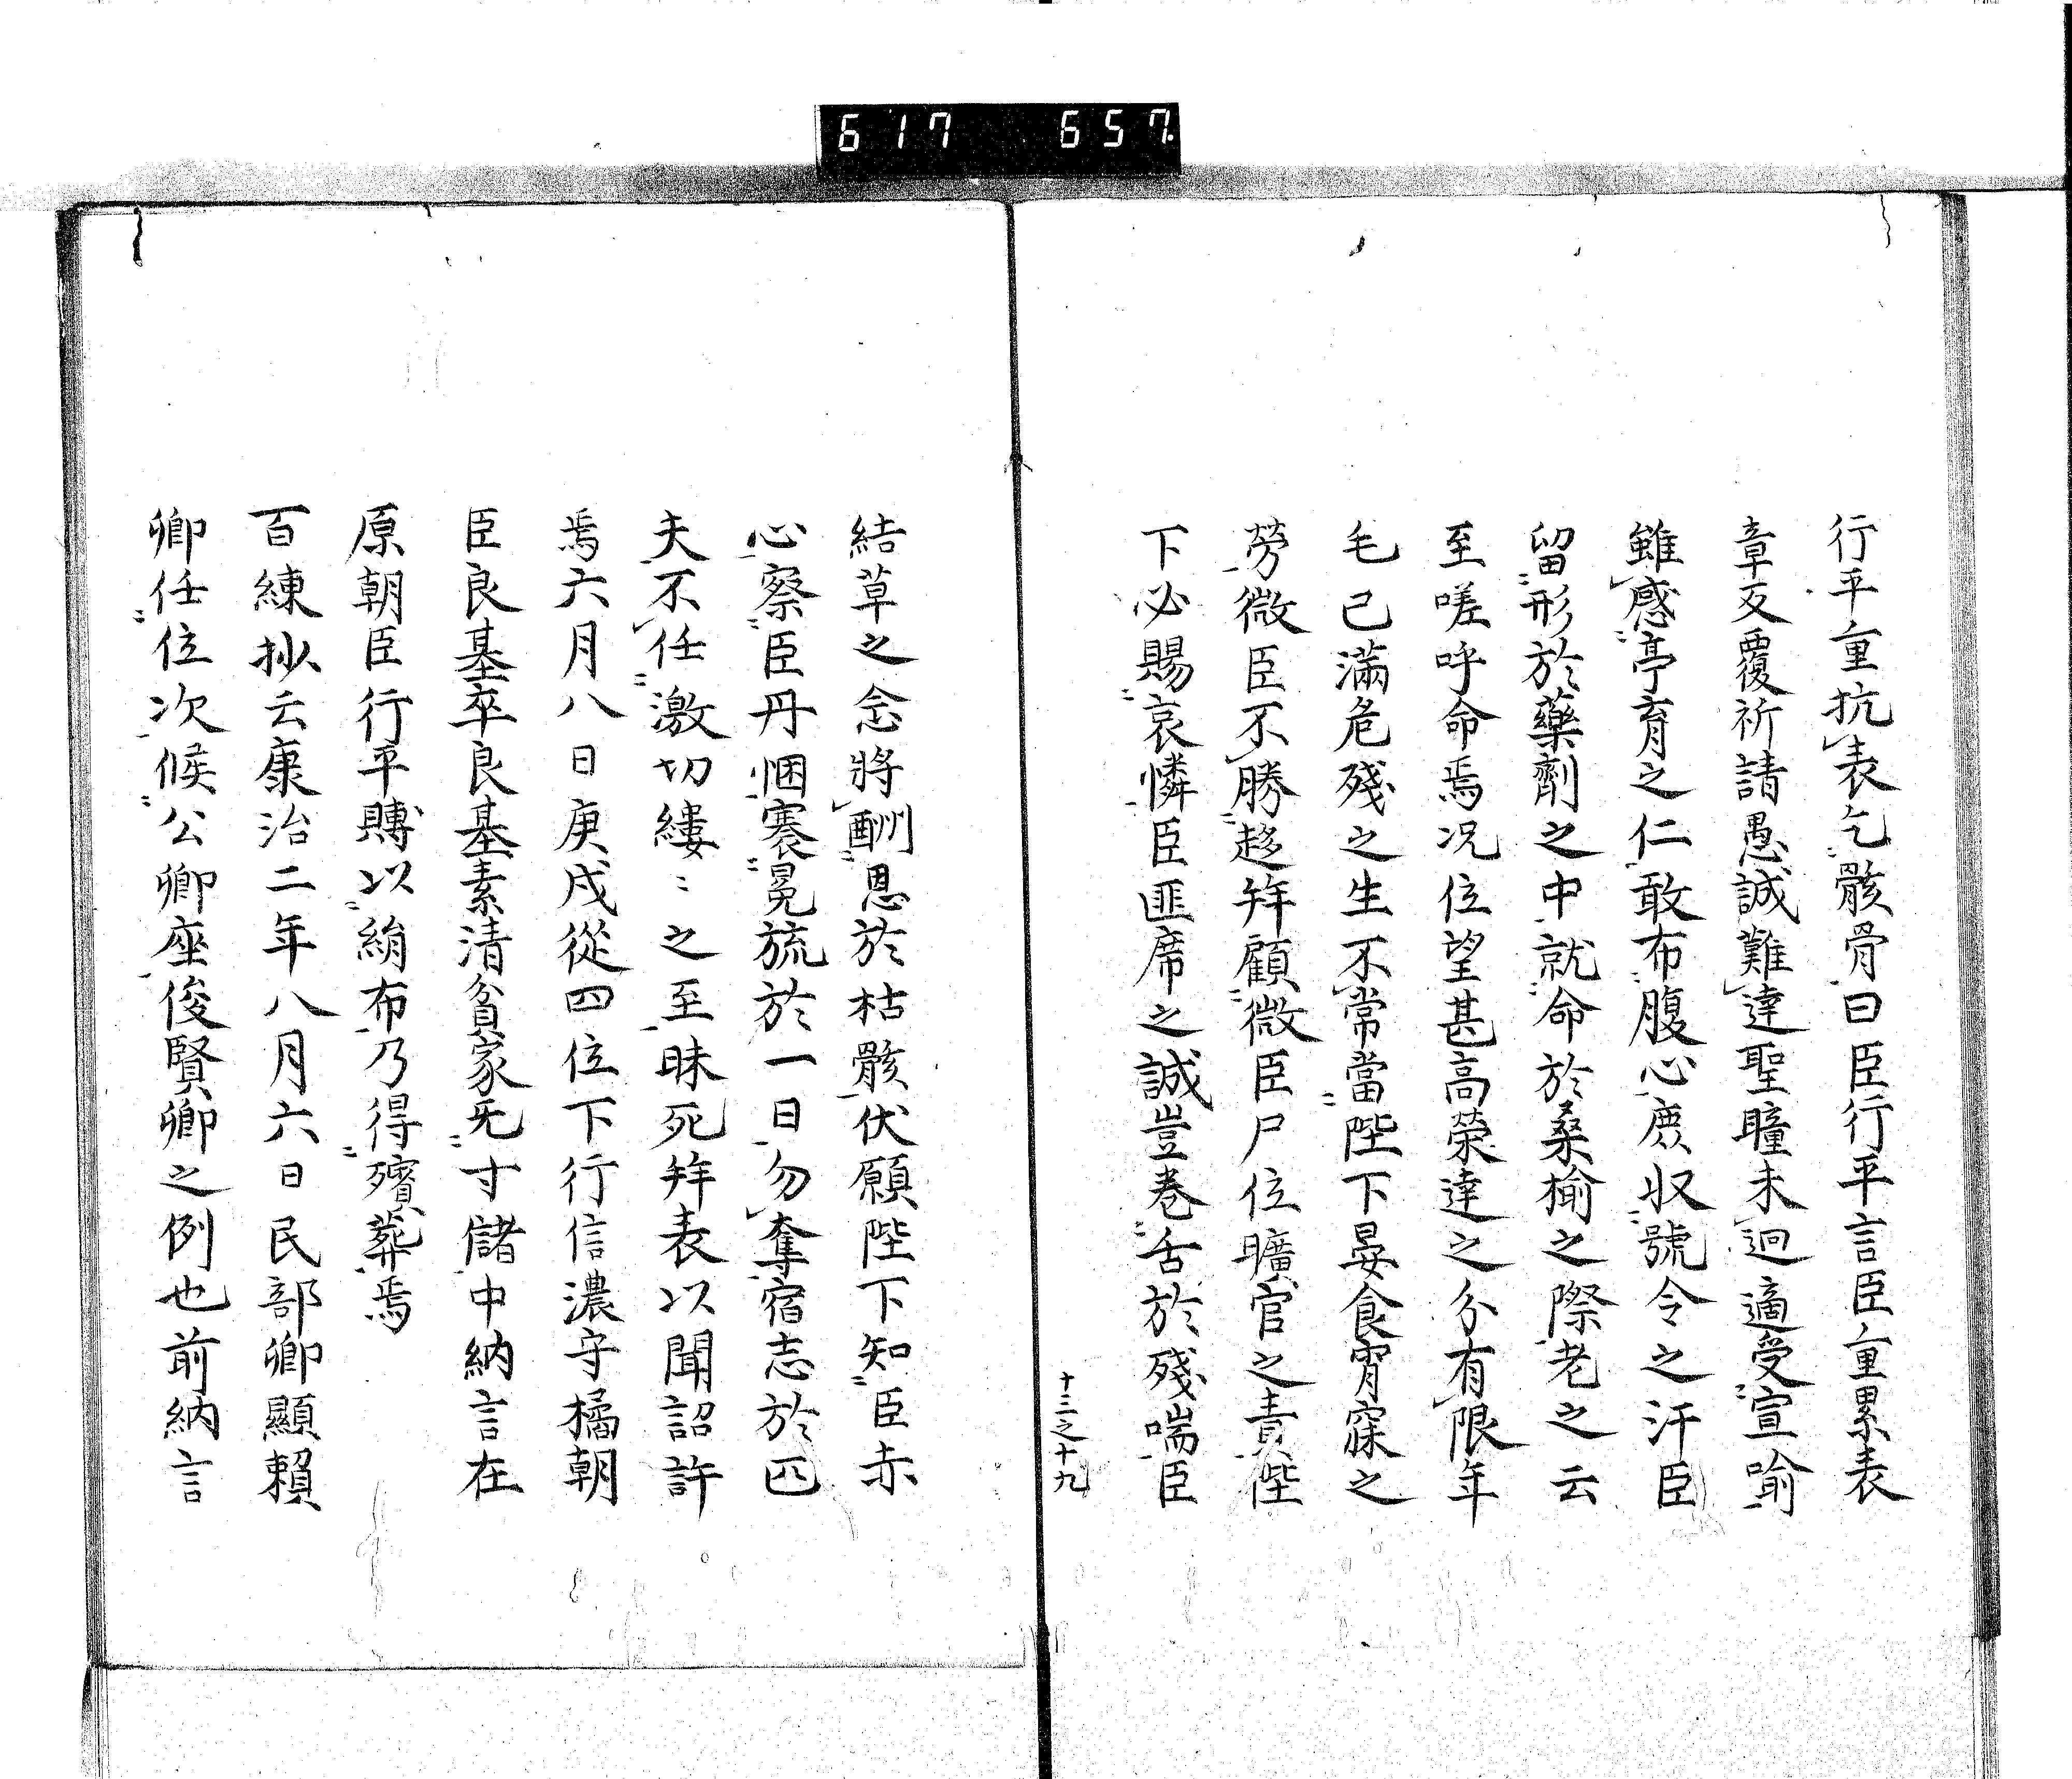 617 657
行平重抗表乞骸骨曰臣行平言臣重累表
章反覆祈請愚誠難達聖瞳未迴適受宣喻
雖感亭育之仁敢布腹心庶収號令之汗臣
留形於藥劑之中就命於桑榆之際老之云
至嗟呼命焉况位望甚高榮達之分有限年
毛已滿危殘之生不常當陛下晏食宵寐之
勞微臣不勝趍拜顧微臣尸位曠官之責陛
下必賜哀憐臣匪席之誠豈卷舌於殘喘臣
十三之十九
結草之念將酬恩於枯骸伏願陛下知臣赤
心察臣丹悃褰冕旒於一日勿奪宿志於匹
夫不任激切縷〻之至昧死拜表以聞詔許
焉六月八日庚戌從四位下行信濃守橘朝
臣良基卒良基素清貧家无寸儲中納言在
原朝臣行平賻以絹布乃得殯葬焉
百練抄云康治二年八月六日民部卿顯頼
卿任位次候公卿座俊賢卿之例也前納言